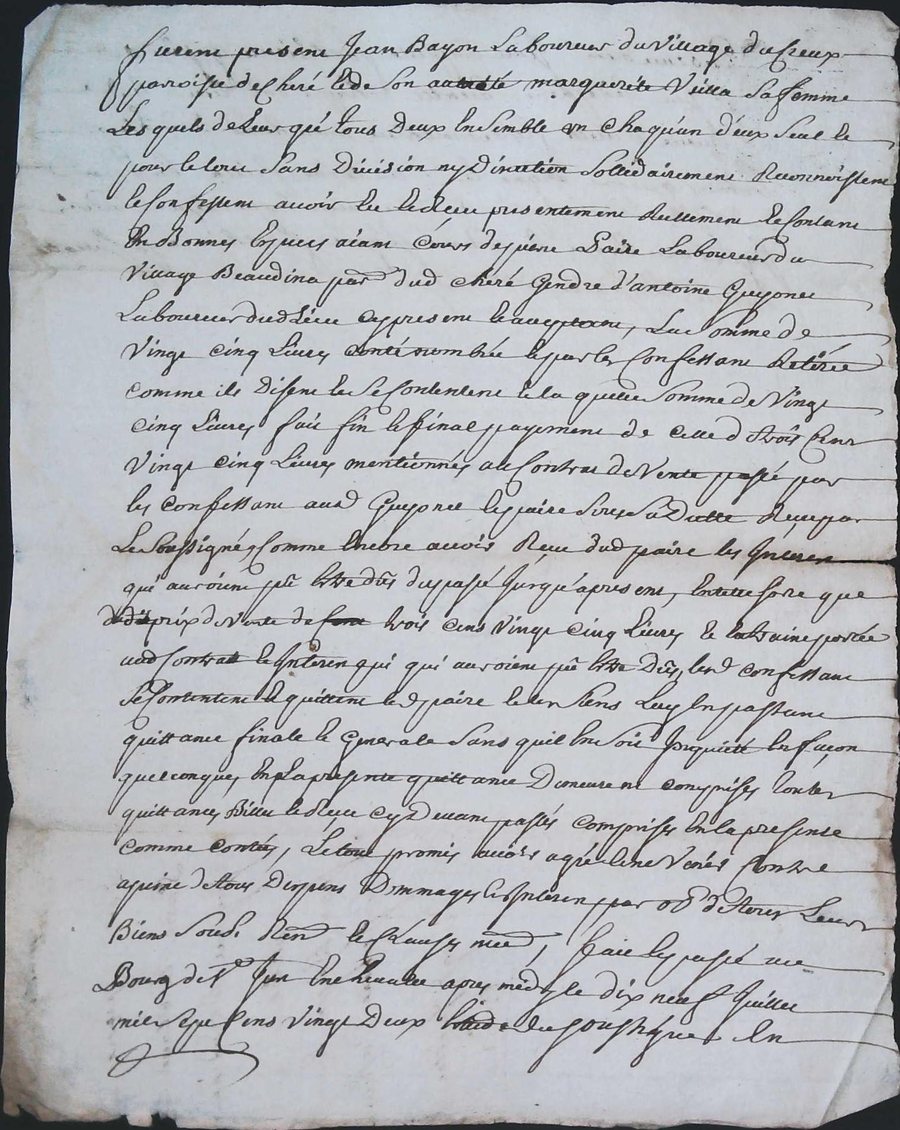 furent present Jean Bayon Laboureur du village du Creux
paroisse de Cheré et de son autorité marguerite Veilla sa femme
Lesquels de leur gré tous deux Ensemble un chaqu'un d'eux seul et
pour le tout sans Division ny Dirution Sollidairement Reconnoissent
et Confessent avoir Eu et Receu presentement Reellement et Contant
En bonnes Espèces aiant Cours de pierre paire Laboureur du
village Beaudina par. dud Cheré Gendre d'antoine Guyonet
Laboureur dud Lieu cy present et aceptant, La Somme de
vingt cinq Livres conté nombrée et par les Confessant Retirée
comme ils Disent et Se Contentent et la quelle Somme de vingt
cinq Livres fait fin et final payement de celle d trois Cent
vingt cinq Livres mentionnés au Contrat de vente passé par
les Confessant aud Guyonet et paire Reçu par
Le Soussigné, Comme Encore avoir Reçu dud paire les Interest
qui auroient pû Estre dûs du passé Jusqu'apresent, En telle sorte que
du dit prix de vente de trois cens vingt cinq Livres et
aud Contrat et Interest qui qui auroient pû Estre Dûs, les d confessant
Se Contentent et quittent led paire et les Siens Luy En passant
quittance finale et Generale Sans quil En Soit Inquieté En façon
quelconques, En La presente quittance Demeurent comprises toutes
quittances Billet et Receu cy devant passés comprises En la presente
comme contés, Le tout promis avoir agré et ne venir Contre
apeine de tous Depens Dommages et Interest par obd d'tous Leurs
Biens Soubs Rend et Clauses necd, fait et passé au
Bourg de St Jean Une heure apres midy le dix neuf Juillet
mil Sept Cens vingt Deux Soussigné En